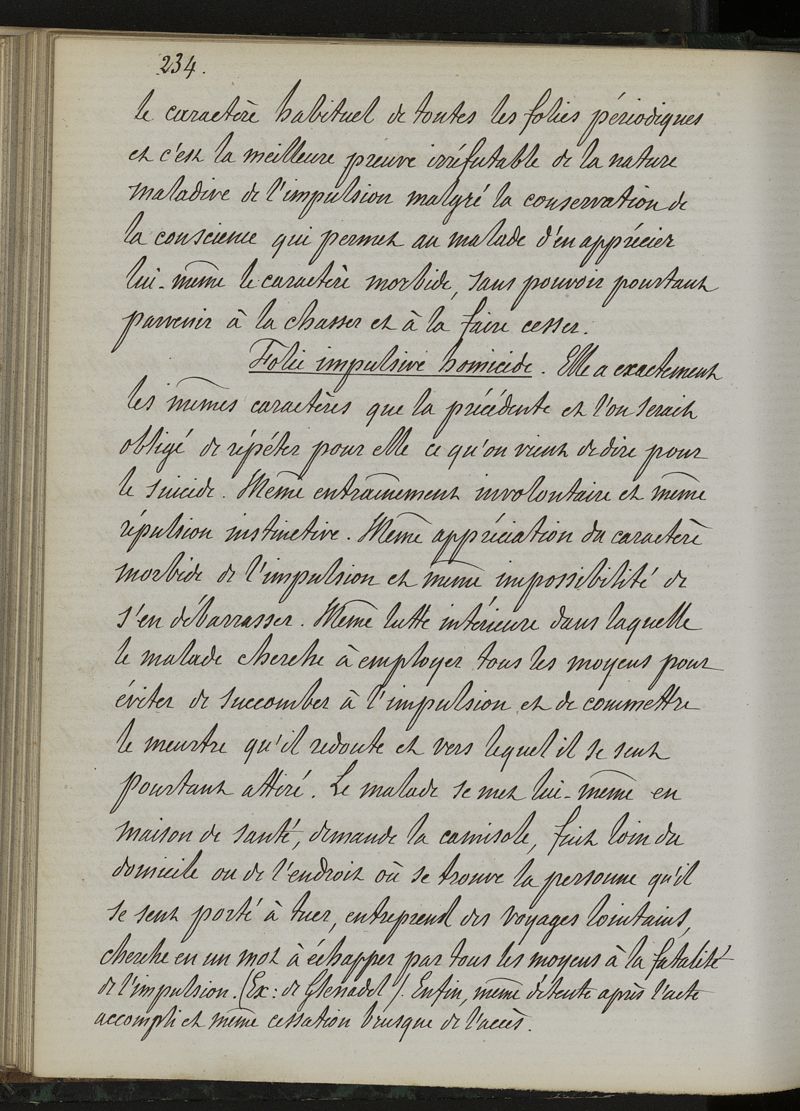 234.
le caractère habituel de toutes les folies périodiques
et c'est la meilleure preuve irréfutable de la nature
maladive de l'impulsion malgré la conservation de
la conscience qui permet au malade d'en apprécier
lui-même le caractère morbide, sans pouvoir pourtant
parvenir à la chasser et à la faire cesser.
Folie impulsive homicide. Elle a exactement
les mêmes caractères que la précédente et l'on serait
obligé de répéter pour elle ce qu'on vient de dire pour
le suicide. Même entraînement involontaire et même
répulsion instinctive. Même appréciation du caractère
morbide de l'impulsion et même impossibilité de
s'en débarrasser. Même lutte intérieure dans laquelle
le malade cherche à employer tous les moyens pour
éviter de succomber à l'impulsion et de commettre
le meurtre qu'il redoute et vers lequel il se sent
pourtant attiré. Le malade se met lui-même en
maison de santé, demande la camisole, fuit loin du
domicile ou de l'endroit où se trouve la personne qu'il
se sent porté à tuer, entreprend des voyages lointains,
cherche en un mot à échapper par tous les moyens à la fatalité
de l'impulsion. (Ex: de Glenadel). Enfin, même détente après l'acte
accompli et même cessation brusque de l'accès.